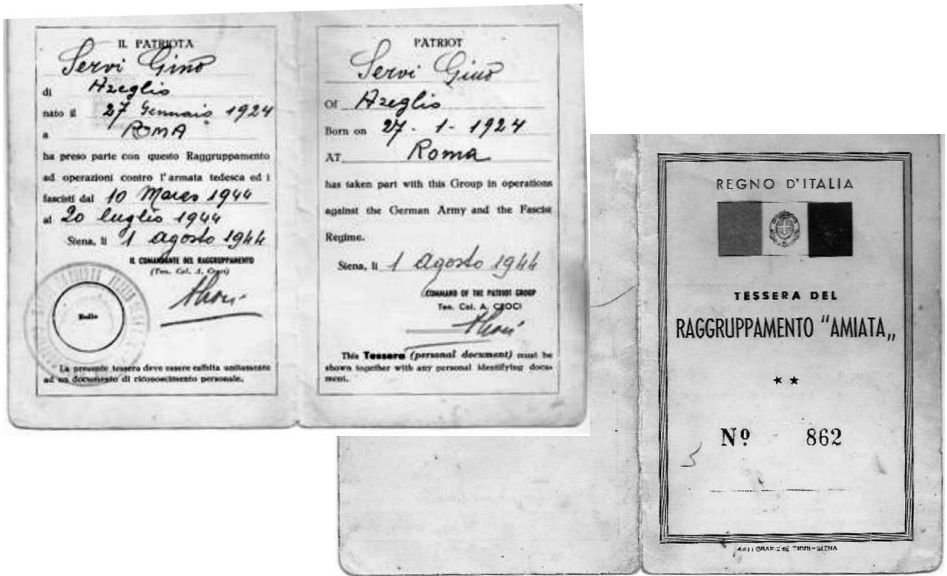 IL PATRIOTA
Servi Gino
di Azeglio
nato il 27 Gennaio 1924
a ROMA
ha preso parte con questo Raggruppamento
ad operazioni contro l'armata tedesca ed i
fascisti dal 10 Marzo 1944
al 20 luglio 1944
Siena, li 1 agosto 1944
IL COMANDANTE DEL RAGGRUPPAMENTO
(Ten. Col. A. Croci)
Bollo
La presente tessera deve essere esibita unitamente
ad un documento di riconoscimento personale.
PATRIOT
Servi Gino
Of Azeglio
Born on 27 - 1 - 1924
AT Roma
has taken part with this Group in operations
against the German Army and the Fascist
Regime.
Siena, li 1 agosto 1944
COMMAND OF THE PATRIOT GROUP
Ten. Col. A. CROCI
This Tessera (personal document) must be
shown together with any personal identifying docu-
ment.
REGNO D'ITALIA
TESSERA DEL
RAGGRUPPAMENTO "AMIATA„
★ ★
Nº 862